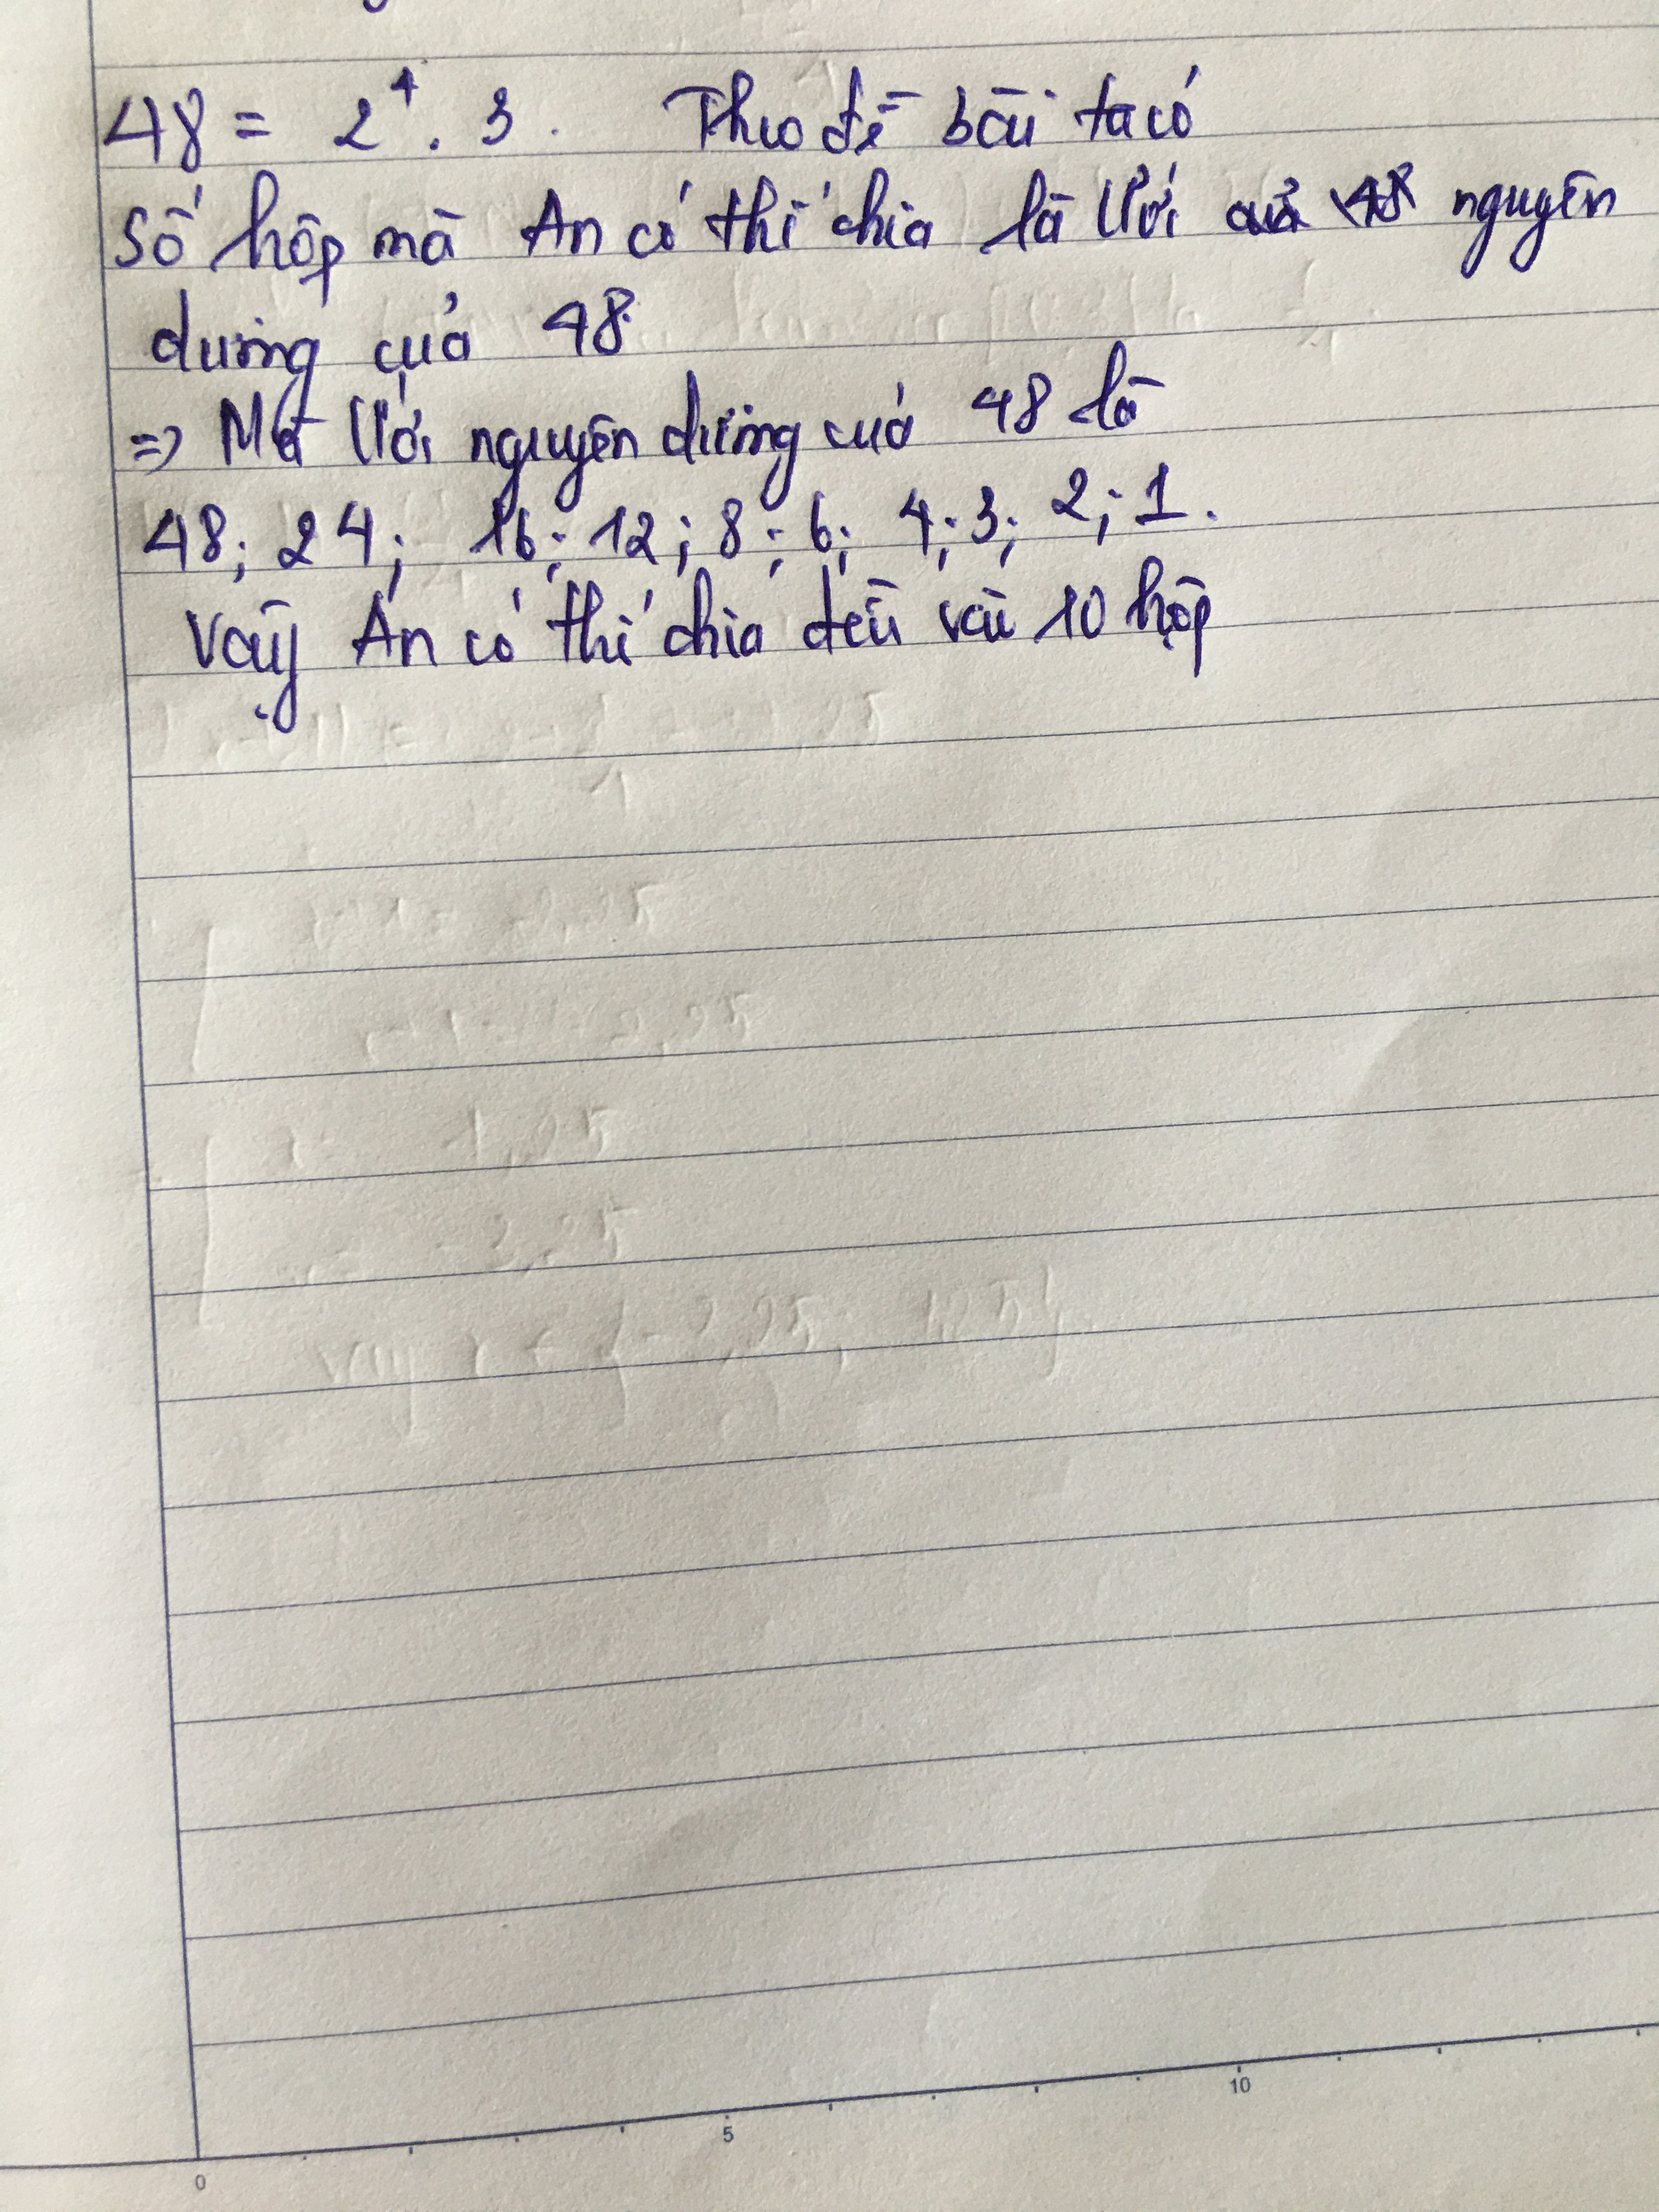 48 = 2⁴ . 3 . Theo đề bài ta có
Số hộp mà An có thể chia là Ước của 48 nguyên
dương của 48.
=> Mà Ước nguyên dương của 48 là
48; 24; 16; 12; 8; 6; 4; 3; 2; 1.
Vậy An có thể chia đều vào 10 hộp
0 5 10